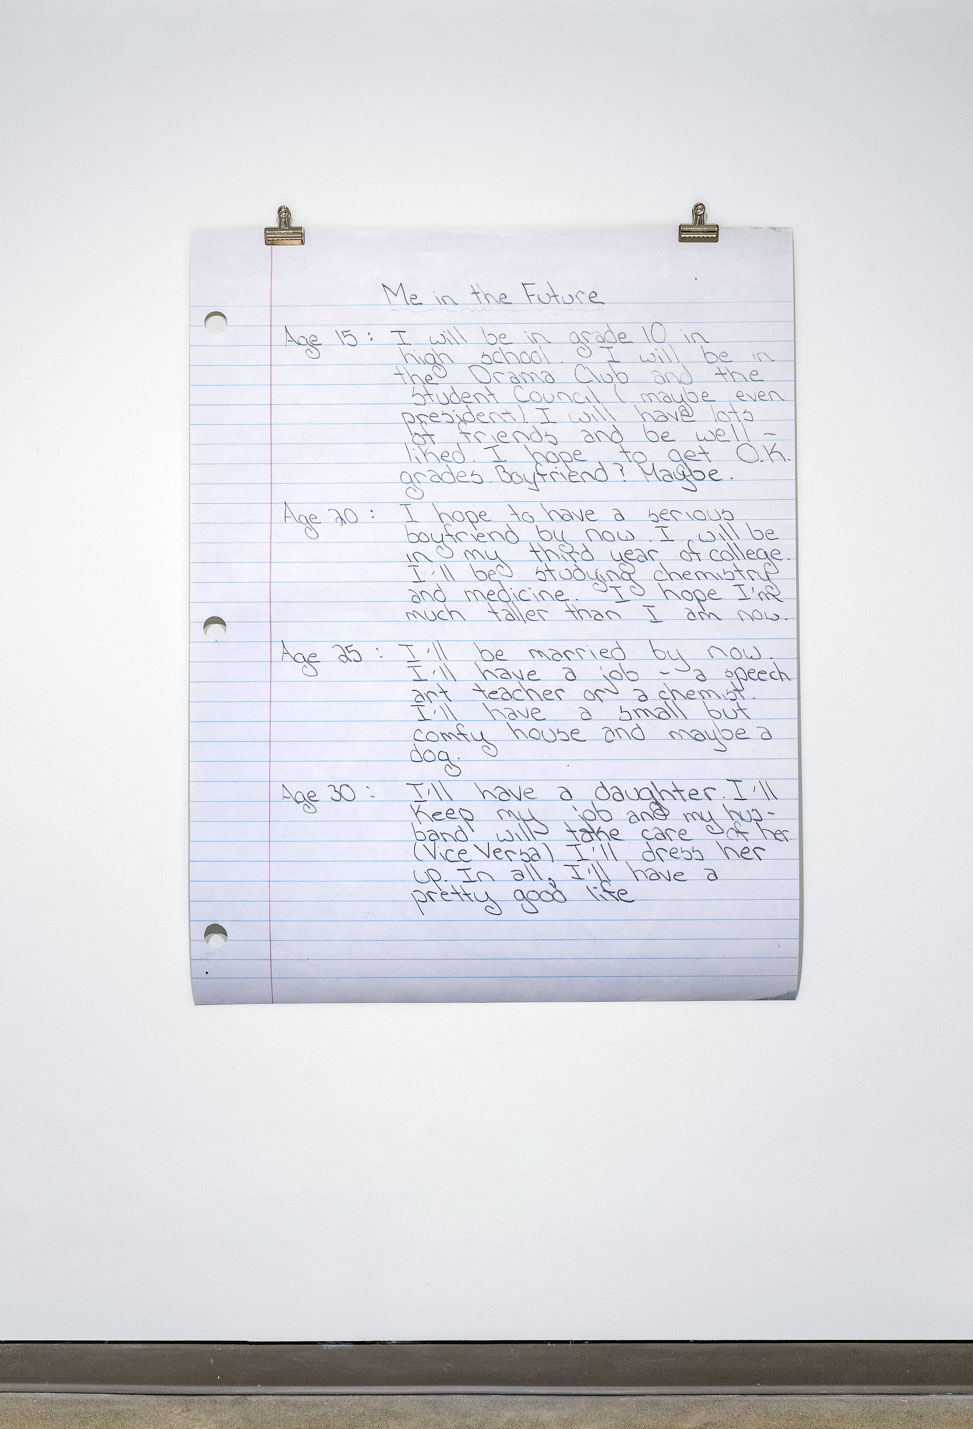 Me in the Future
Age 15: I will be in grade 10 in
high school. I will be in
the Drama Club and the
Student Council (maybe even
president). I will have lots
of friends and be well-
liked. I hope to get O.K.
grades. Boyfriend? Maybe.
Age 20: I hope to have a serious
boyfriend by now. I will be
in my third year of college.
I'll be studying chemistry
and medicine. I hope I'm
much taller than I am now.
Age 25: I'll be married by now.
I'll have a job - a speech
art teacher or a chemist.
I'll have a small but
comfy house and maybe a
dog.
Age 30: I'll have a daughter. I'll
keep my job and my hus-
band will take care of her
(Vice Versa) I'll dress her
up. In all, I'll have a
pretty good life